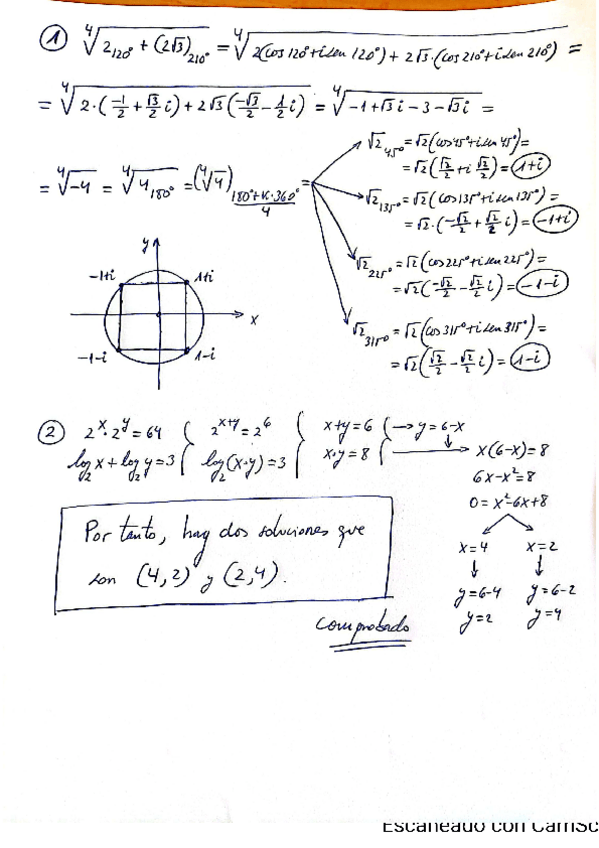 ① ∜(2₁₂₀° + (2√3)₂₁₀°) = ∜(2(cos 120°+i sen 120°) + 2√3·(cos 210°+i sen 210°)) =
= ∜(2·(-1/2 + √3/2 i) + 2√3(-√3/2 - 1/2 i)) = ∜(-1+√3i - 3 - √3i) =
= ∜-4 = ∜(4₁₈₀°) = (∜4)_((180°+k·360°)/4) =
√2₄₅° = √2(cos 45°+i sen 45°) =
= √2(√2/2 + i √2/2) = 1+i
√2₁₃₅° = √2(cos 135°+i sen 135°) =
= √2·(-√2/2 + √2/2 i) = -1+i
√2₂₂₅° = √2(cos 225°+i sen 225°) =
= √2(-√2/2 - √2/2 i) = -1-i
√2₃₁₅° = √2(cos 315°+i sen 315°) =
= √2(√2/2 - √2/2 i) = 1-i
y
-1+i 1+i
x
-1-i 1-i
② 2ˣ·2ʸ=64 { 2ˣ⁺ʸ=2⁶ { x+y=6 { → y=6-x
log₂x + log₂y = 3 { log₂(x·y) = 3 { x·y=8 { → x(6-x)=8
6x-x²=8
0=x²-6x+8
x=4 x=2
y=6-4 y=6-2
y=2 y=4
Por tanto, hay dos soluciones que
son (4,2) y (2,4).
Comprobado
Escaneado con CamSc